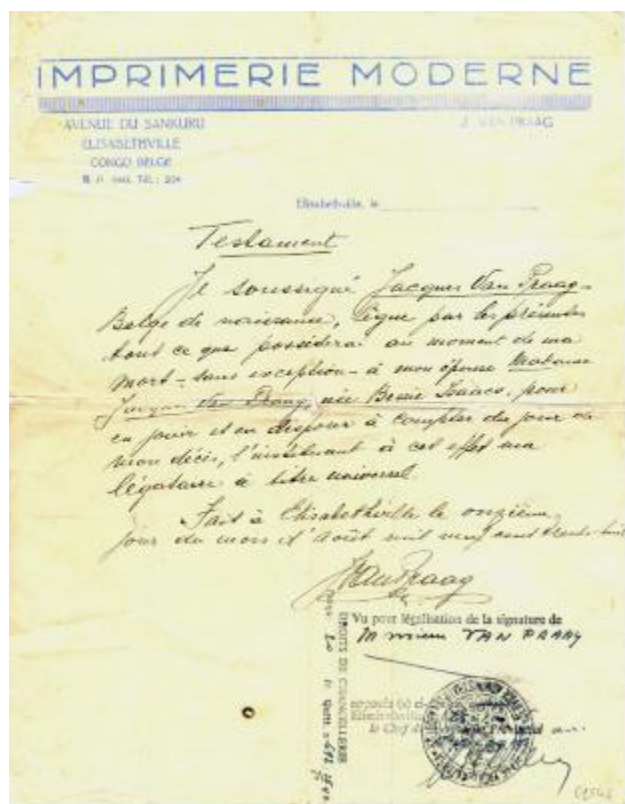 IMPRIMERIE MODERNE
AVENUE DU SANKURU
J. VAN PRAAG
ELISABETHVILLE
CONGO BELGE
Elisabethville, le
Testament
Je soussigné Jacques Van Praag -
Belge de naissance, lègue par les présentes
tout ce que possèderai au moment de ma
mort - sans exception - à mon épouse Madame
Jacques Van Praag, née Bessie Isaacs, pour
en jouir et en disposer à compter du jour de
mon décès, l'instituant à cet effet ma
légataire à titre universel.
Fait à Elisabethville le onzième
jour du mois d'août mil neuf cent trente-huit
JVan Praag
Vu pour légalisation de la signature de
VAN PRAAG
DROITS DE CHANCELLERIE
le Chef
Provincial